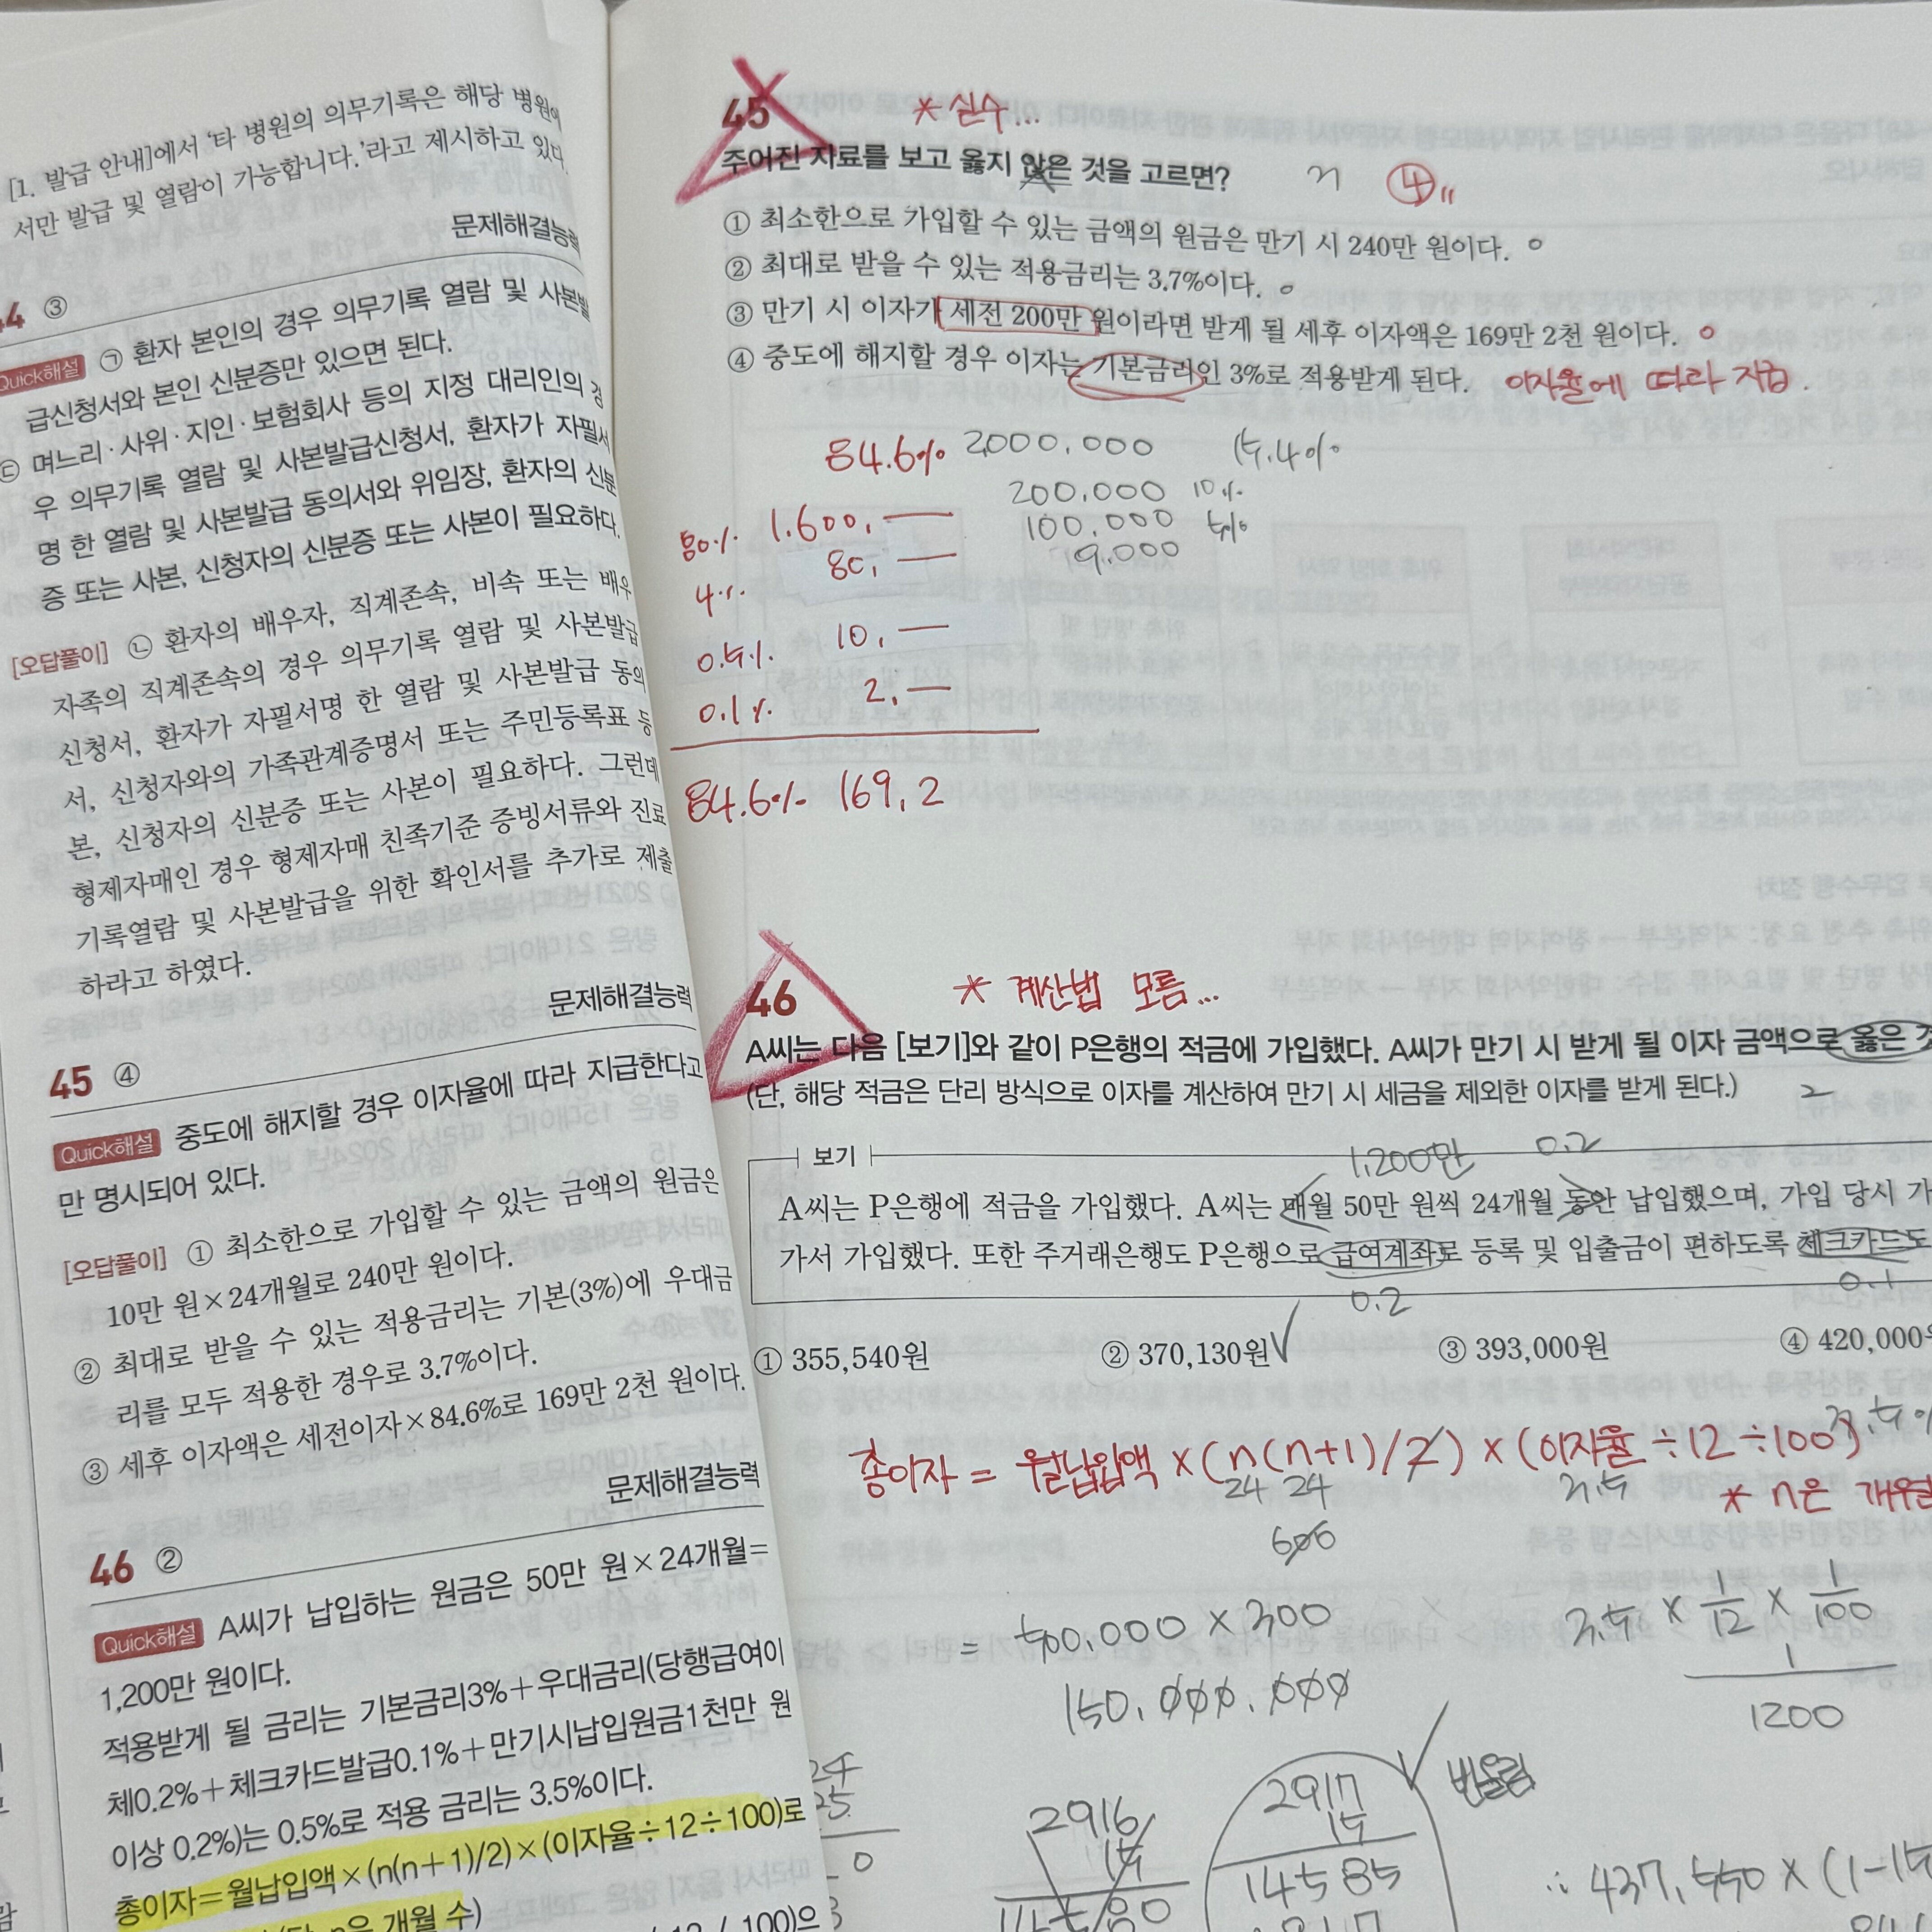 [1. 발급 안내]에서 '타 병원의 의무기록은 해당 병원에
서만 발급 및 열람이 가능합니다.'라고 제시하고 있다.
문제해결능력
44 ③
Quick해설 ㉠ 환자 본인의 경우 의무기록 열람 및 사본발
급신청서와 본인 신분증만 있으면 된다.
㉢ 며느리·사위·지인·보험회사 등의 지정 대리인의 경
우 의무기록 열람 및 사본발급신청서, 환자가 자필서
명 한 열람 및 사본발급 동의서와 위임장, 환자의 신분
증 또는 사본, 신청자의 신분증 또는 사본이 필요하다.
[오답풀이] ㉡ 환자의 배우자, 직계존속, 비속 또는 배우
자족의 직계존속의 경우 의무기록 열람 및 사본발급
신청서, 환자가 자필서명 한 열람 및 사본발급 동의
서, 신청자와의 가족관계증명서 또는 주민등록표 등
본, 신청자의 신분증 또는 사본이 필요하다. 그런데
형제자매인 경우 형제자매 친족기준 증빙서류와 진료
기록열람 및 사본발급을 위한 확인서를 추가로 제출
하라고 하였다.
문제해결능력
45 ④
Quick해설 중도에 해지할 경우 이자율에 따라 지급한다고
만 명시되어 있다.
[오답풀이] ① 최소한으로 가입할 수 있는 금액의 원금은
10만 원×24개월로 240만 원이다.
② 최대로 받을 수 있는 적용금리는 기본(3%)에 우대금
리를 모두 적용한 경우로 3.7%이다.
③ 세후 이자액은 세전이자×84.6%로 169만 2천 원이다.
문제해결능력
46 ②
Quick해설 A씨가 납입하는 원금은 50만 원×24개월=
1,200만 원이다.
적용받게 될 금리는 기본금리3%+우대금리(당행급여이
체0.2%+체크카드발급0.1%+만기시납입원금1천만 원
이상 0.2%)는 0.5%로 적용 금리는 3.5%이다.
총이자=월납입액×(n(n+1)/2)×(이자율÷12÷100)로
n은 개월 수)
45 * 실수...
주어진 자료를 보고 옳지 않은 것을 고르면? ④
① 최소한으로 가입할 수 있는 금액의 원금은 만기 시 240만 원이다. o
② 최대로 받을 수 있는 적용금리는 3.7%이다. o
③ 만기 시 이자가 세전 200만 원이라면 받게 될 세후 이자액은 169만 2천 원이다. o
④ 중도에 해지할 경우 이자는 기본금리인 3%로 적용받게 된다. 이자율에 따라 지급.
84.6% 2000.000 15.4%
200.000 10%
80% 1.600, 100.000 5%
4% 80, 9.000
0.5% 10,
0.1% 2,
84.6% 169,2
46 * 계산법 모름...
A씨는 다음 [보기]와 같이 P은행의 적금에 가입했다. A씨가 만기 시 받게 될 이자 금액으로 옳은
(단, 해당 적금은 단리 방식으로 이자를 계산하여 만기 시 세금을 제외한 이자를 받게 된다.) 2
보기 1,200만 0.2
A씨는 P은행에 적금을 가입했다. A씨는 매월 50만 원씩 24개월 동안 납입했으며, 가입 당시
가서 가입했다. 또한 주거래은행도 P은행으로 급여계좌로 등록 및 입출금이 편하도록 체크카드도
0.2 0.1
① 355,540원 ② 370,130원 ③ 393,000원 ④ 420,000원
총이자 = 월납입액 × (n(n+1)/2) × (이자율 ÷12 ÷100)
24 24 3.5 * n은 개월
600
= 500.000 × 300 3.5 × 1/12 × 1/100
150.000.000 1
1200
24
25
2916
15
2917
15
14585
반올림
∴ 437,550 × (1-15